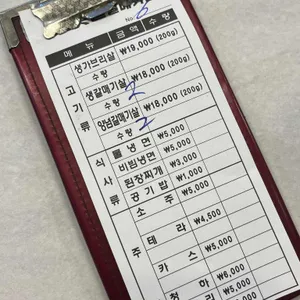 No. 6
메뉴 금액 수량
고기류
생가브리살 ₩19,000 (200g)
수량
생갈매기살 ₩18,000 (200g)
수량 2
양념갈매기살 ₩18,000 (200g)
수량 2
식사류
물냉면 ₩5,000
비빔냉면 ₩5,000
된장찌개 ₩3,000
공기밥 ₩1,000
소주 ₩5,000
주
테라 ₩4,500
카스 ₩5,000
청하 ₩6,000
₩5,000